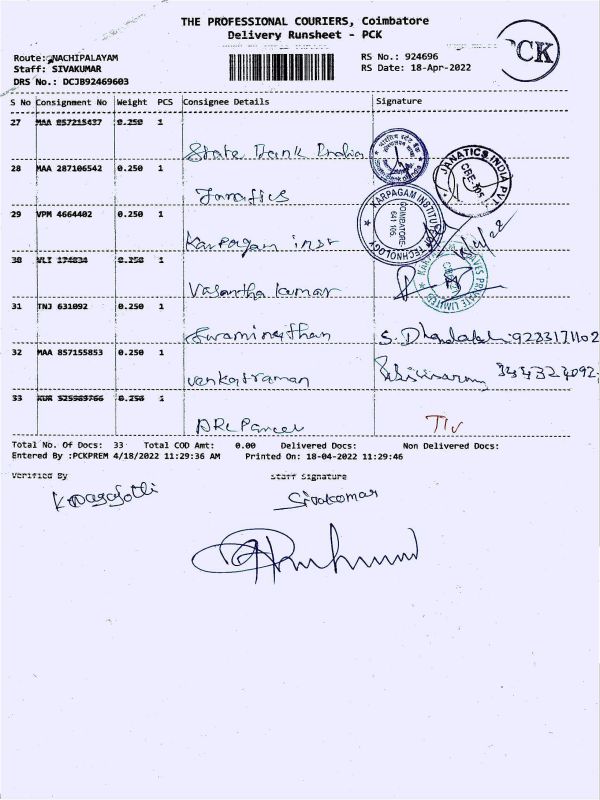 THE PROFESSIONAL COURIERS, Coimbatore
Delivery Runsheet - PCK
PCK
Route: NACHIPALAYAM
Staff: SIVAKUMAR
DRS No.: DCJB92469603
RS No.: 924696
RS Date: 18-Apr-2022
S No Consignment No Weight PCS Consignee Details Signature
27 MAA 857215437 0.250 1
State Bank India
28 MAA 287106542 0.250 1
Janatics
JANATICS INDIA PVT
29 VPM 4664402 0.250 1
Karpagam inst
KARPAGAM INSTITUTE OF TECHNOLOGY
COIMBATORE
641 105
30 VLI 174834 0.250 1
Vasantha Kumar
PRIVATE LIMITED
31 TNJ 631092 0.250 1
Swaminathan
32 MAA 857155853 0.250 1
Venkatraman
33 KUR 525989766 0.250 1
Total No. Of Docs: 33 Total COD Amt: 0.00 Delivered Docs: Non Delivered Docs:
Entered By :PCKPREM 4/18/2022 11:29:36 AM Printed On: 18-04-2022 11:29:46
Verified By Staff Signature
Sivakumar